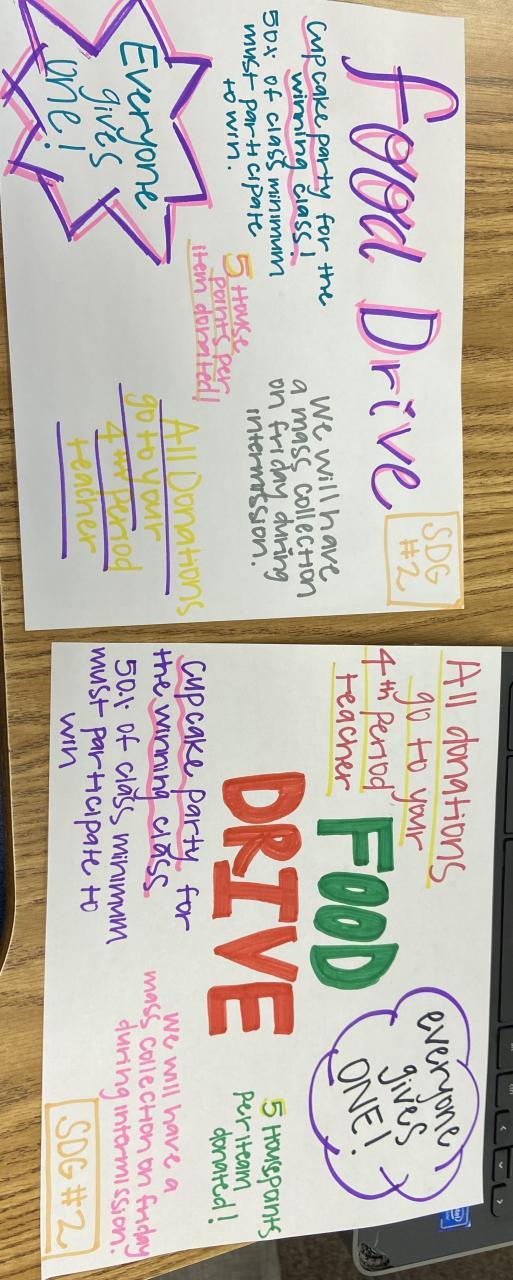 Food Drive
SDG
#2
Cupcake party for the
winning class!
50% of class minimum
must participate
to win.
We will have
a mass collection
on friday during
intermission.
5 House
points per
item donated!
Everyone
gives
one!
All Donations
go to your
4th period
teacher
All donations
go to your
4th period
teacher
FOOD
DRIVE
everyone
gives
ONE!
Cupcake party for
the winning class
50% of class minimum
must participate to
win
5
per item
donated!
We will have a
mass collection on friday
during intermission.
SDG #2